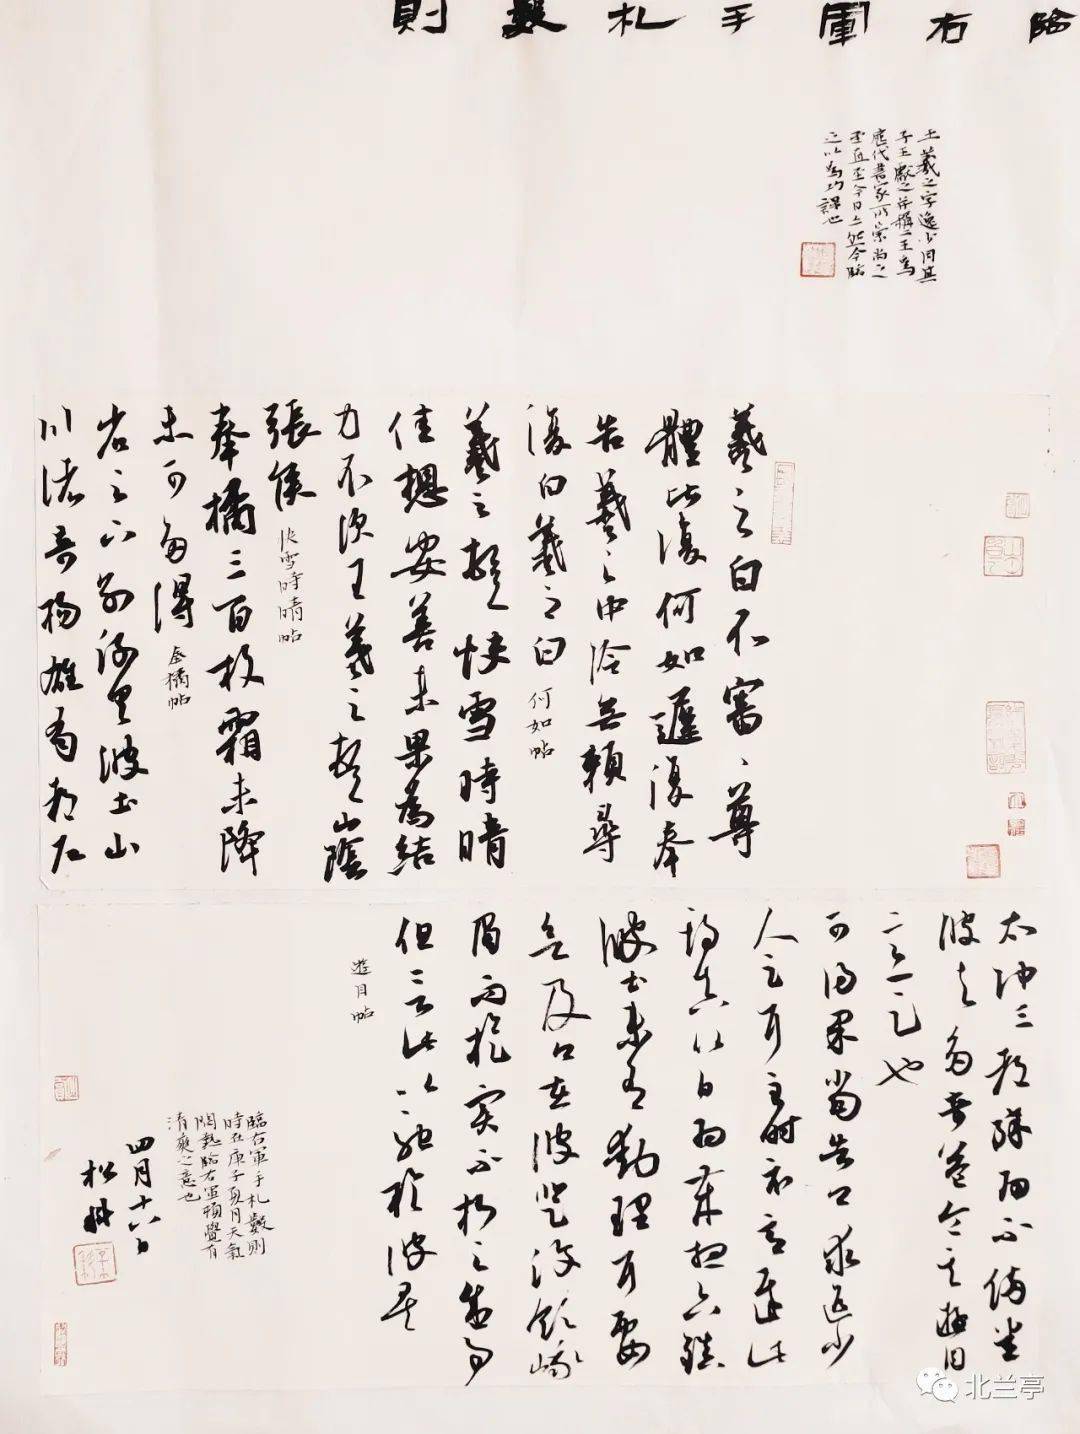 臨右軍手札數則
王羲之字逸少同其
子王獻之并稱二王為
歷代書家所崇尚之
至直至今日亦然今臨
之以為功課也
羲之白不審、尊
體比復何如遲復奉
告羲之中冷無賴尋
復白羲之白 何如帖
羲之頓首快雪時晴
佳想安善未果為結
力不次王羲之頓首山陰
張侯 快雪時晴帖
奉橘三百枚霜未降
未可多得 奉橘帖
省足下別疏具彼土山
川諸奇揚雄蜀都左
太沖三都殊為不備悉
彼故多奇益令其遊目
意足也
可得果當告卿求迎少
人足耳至時示意遲此
期真以日為歲想足下鎮
彼土未有動理耳要
欲及卿在彼登汶領峨
眉而旋實不朽之盛事
但言此心以馳於彼矣
遊目帖
臨右軍手札數則
時在庚子夏月天氣
悶熱臨右軍頓覺有
清爽之意也
四月十六日
松
北兰亭